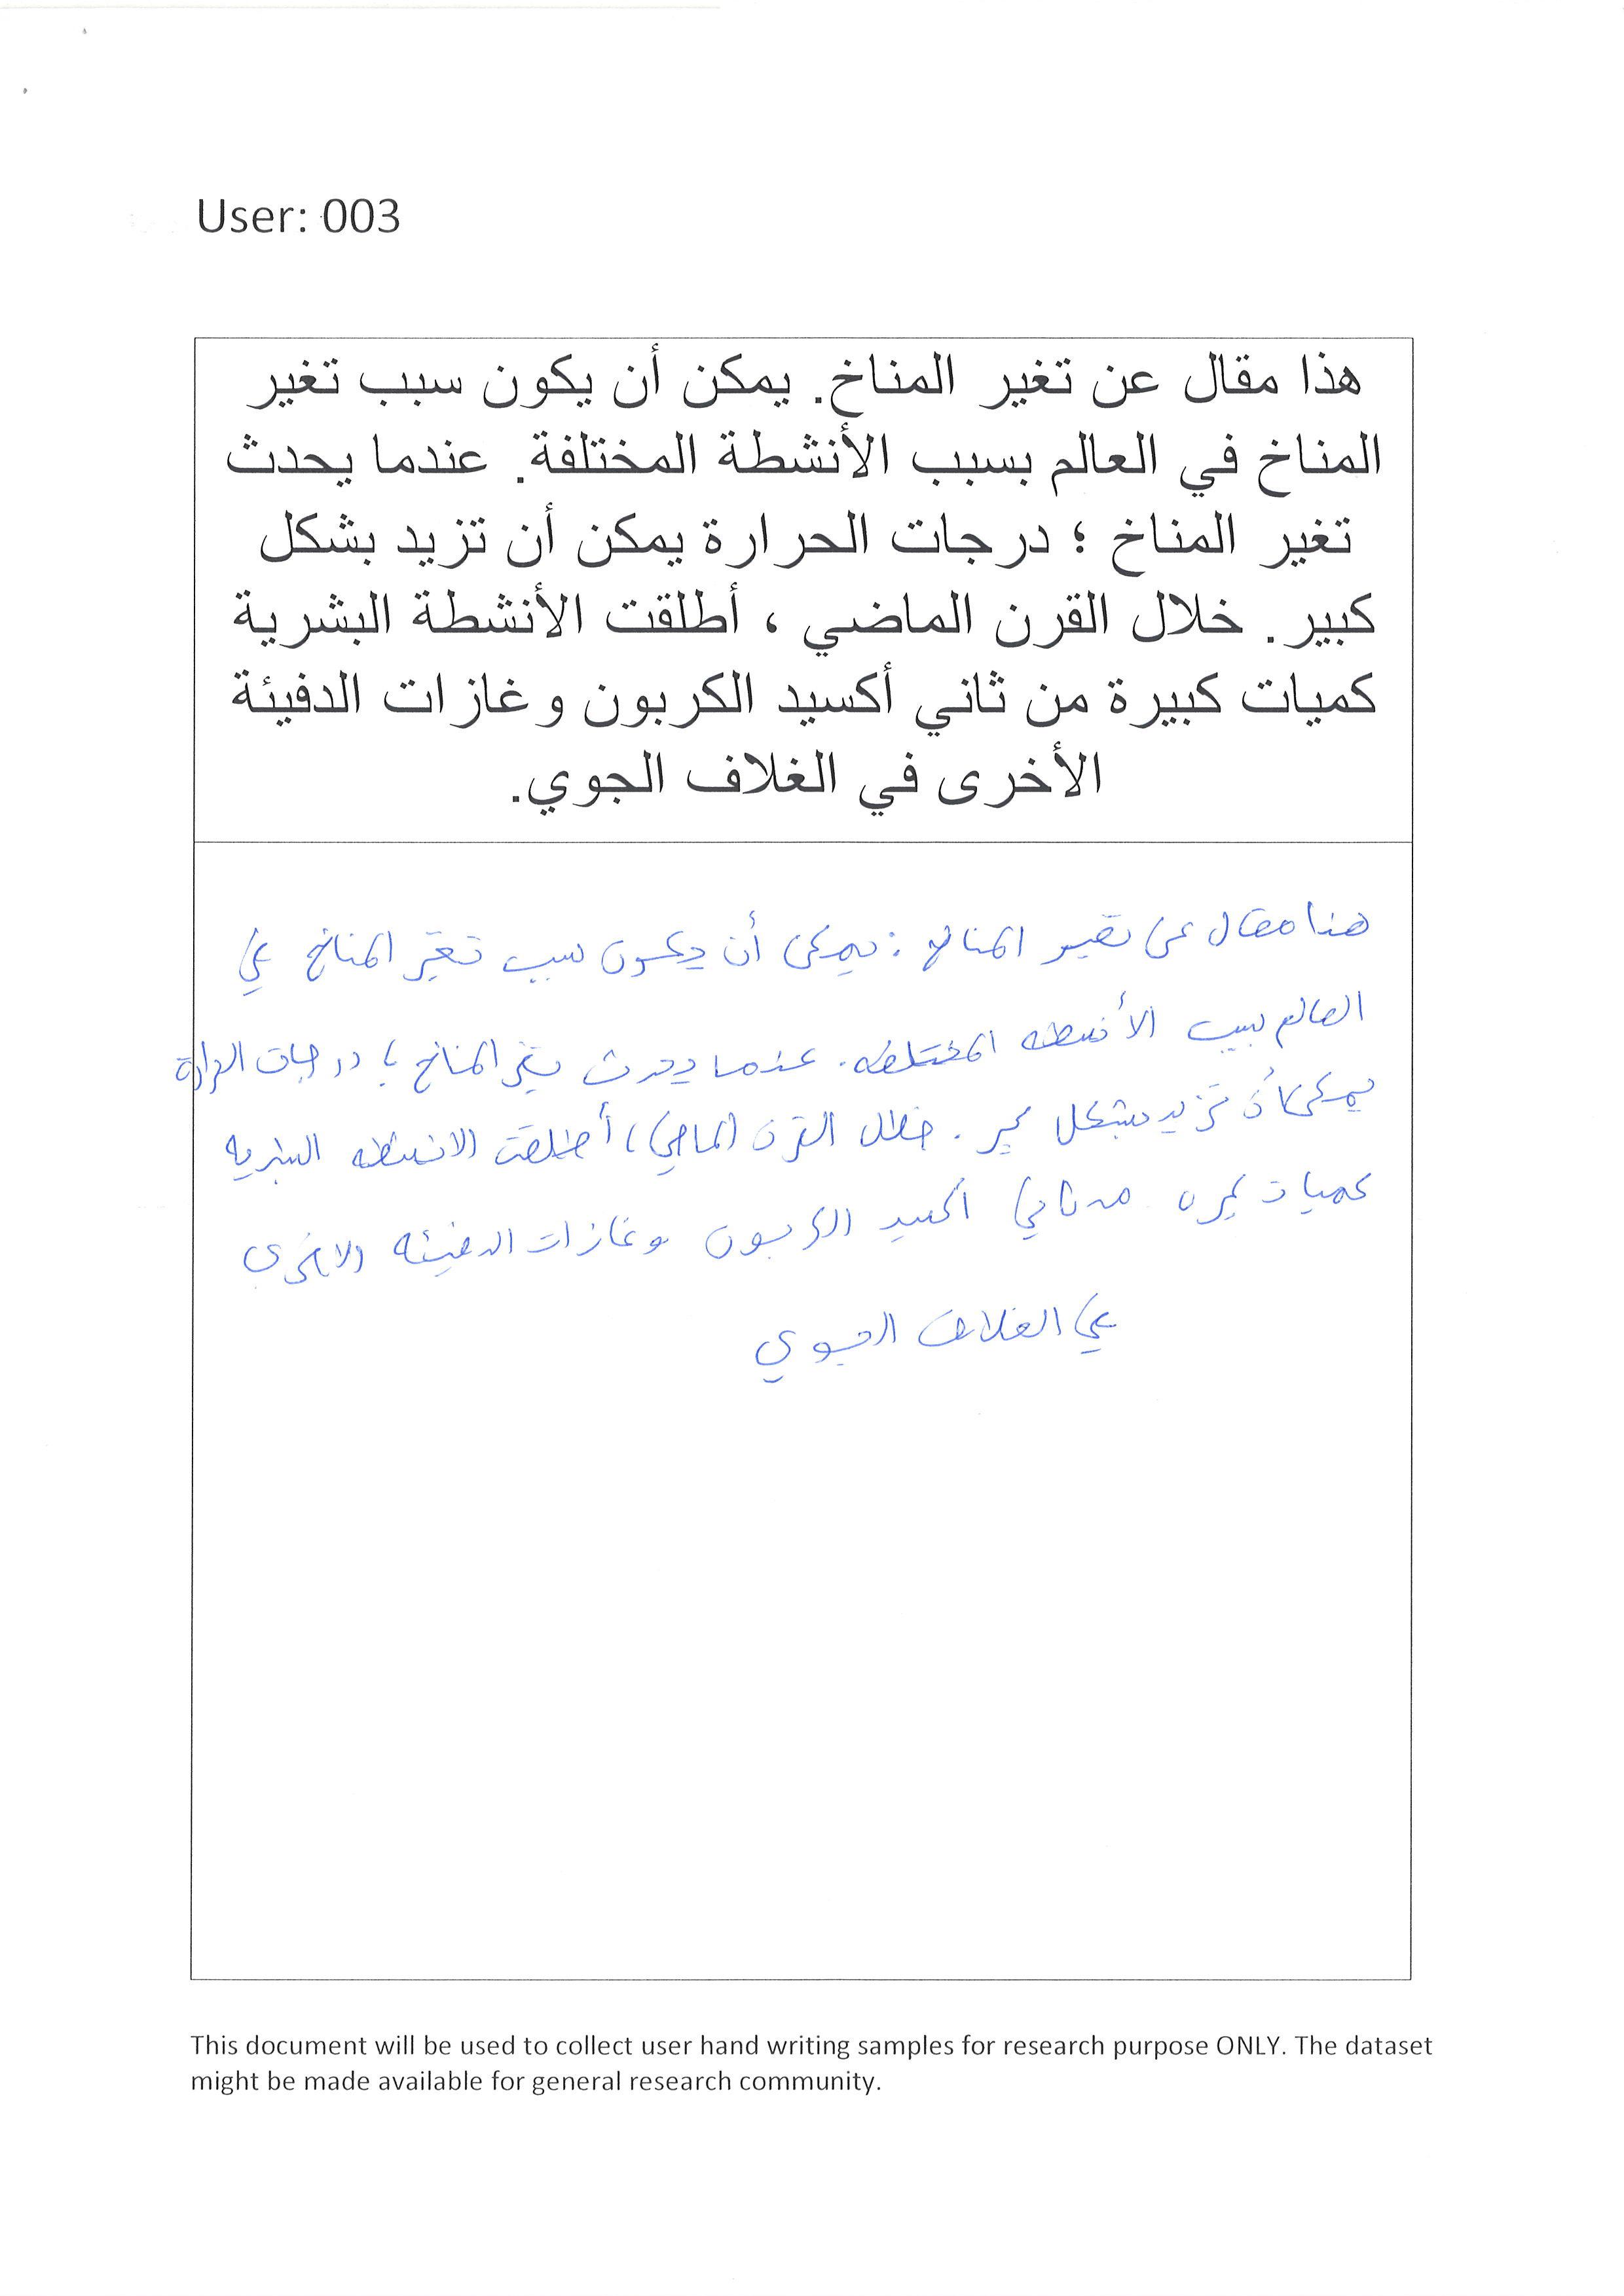 User: 003
هذا مقال عن تغير المناخ. يمكن أن يكون سبب تغير
المناخ في العالم بسبب الأنشطة المختلفة. عندما يحدث
تغير المناخ ؛ درجات الحرارة يمكن أن تزيد بشكل
كبير. خلال القرن الماضي ، أطلقت الأنشطة البشرية
كميات كبيرة من ثاني أكسيد الكربون وغازات الدفيئة
الأخرى في الغلاف الجوي.
هذا مقال عن تغير المناخ : يمكن أن يكون سبب تغير المناخ في
العالم بسبب الأنشطه المختلفه. عندما يحدث تغير المناخ ؛ درجات الحرارة
يمكن أن تزيد بشكل كبير . خلال القرن الماضي ، أطلقت الانشطه البشريه
كميات كبيره من ثاني اكسيد الكربون وغازات الدفيئه الاخرى
في الغلاف الجوي
This document will be used to collect user hand writing samples for research purpose ONLY. The dataset
might be made available for general research community.